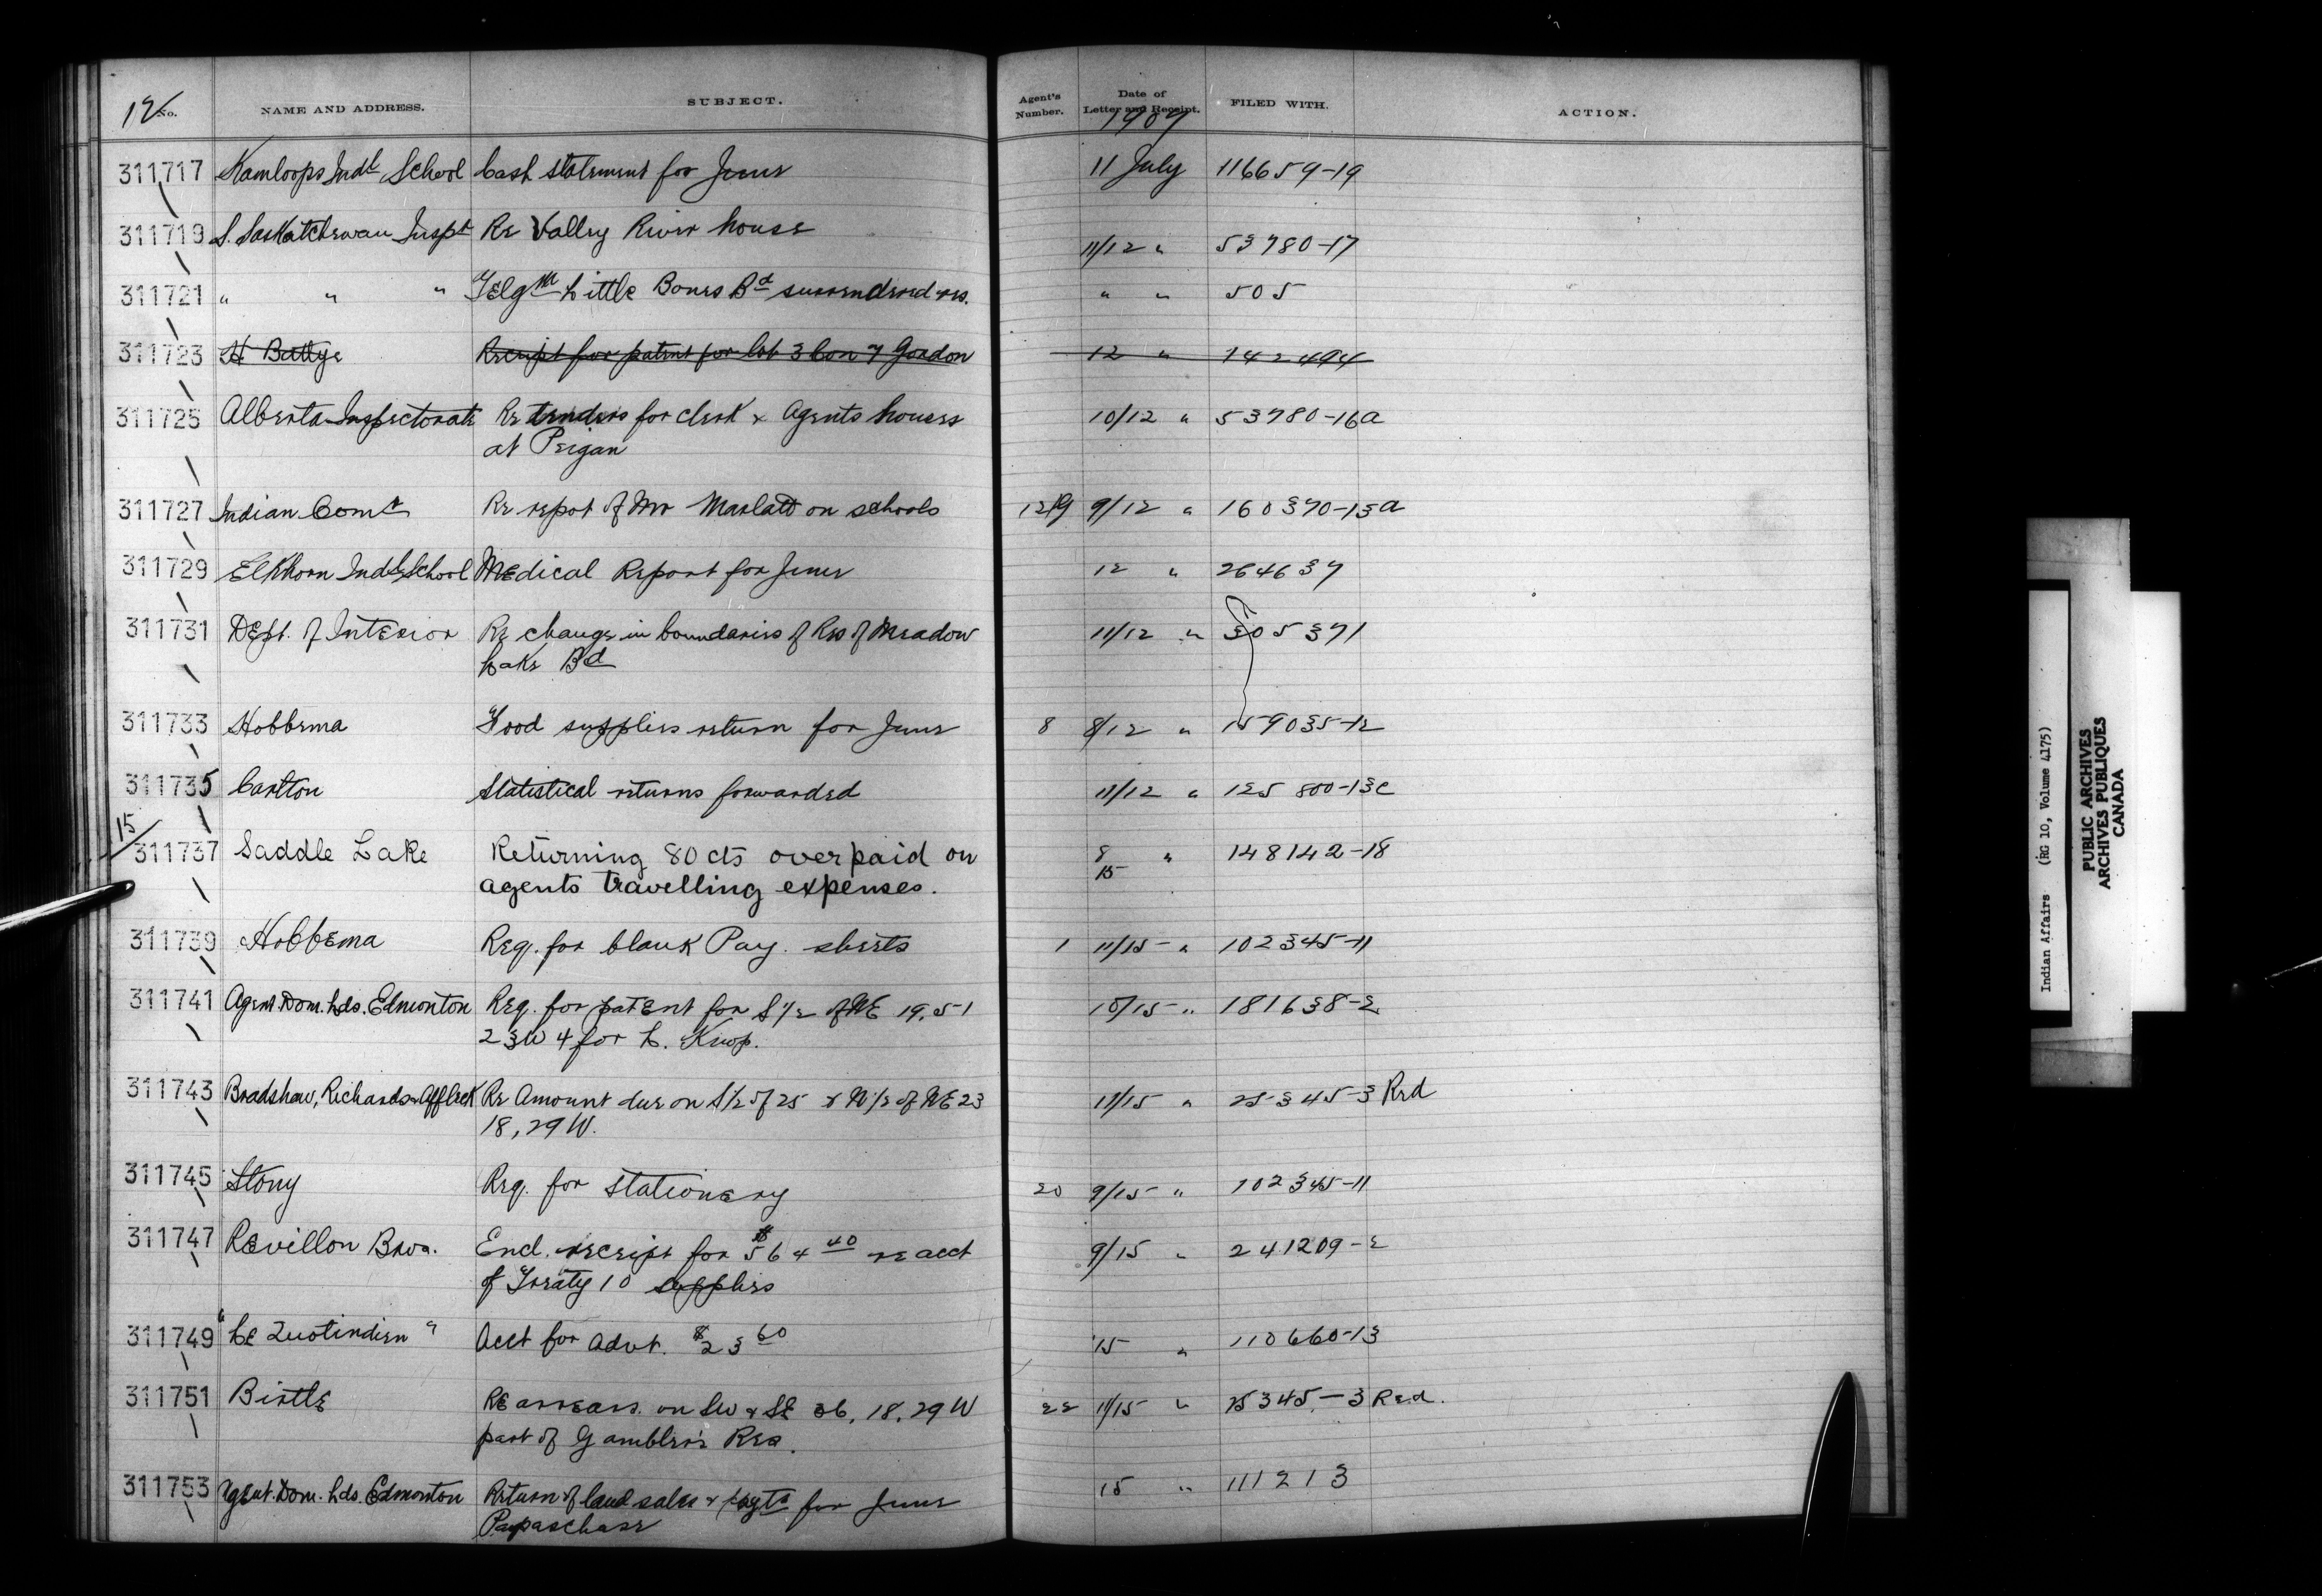 12/ No. NAME AND ADDRESS. SUBJECT. Agent's Number. Date of Letter and Receipt. FILED WITH. ACTION.
1907
311717 Kamloops Indl School Cash statement for June 11 July 116659-19
311719 S. Saskatchewan Inspt Re Valley River house 11/12 " 53780-17
311721 " " " Telgm Little Bones Bd surrendered res. " " 505
311723 H Battye Receipt for patent for lot 3 Con 7 Gordon 12 " 142494
311725 Alberta Inspectorate Re tenders for clerk & Agents houses 10/12 " 53780-16a
at Peigan
311727 Indian Comr Re repot of Mr Marlatt on schools 1219 9/12 " 160370-13a
311729 Elkhorn Indl School Medical Report for June 12 " 264637
311731 Dept. of Interior Re change in boundaries of Res of Meadow 11/12 " 305371
Lake Bd
311733 Hobbema Food supplies return for June 8 8/12 " 159035-12
311735 Carlton Statistical returns forwarded 11/12 " 125800-13c
15/
311737 Saddle Lake Returning 80 cts overpaid on 8/15 " 148142-18
agents travelling expenses.
311739 Hobbema Req. for blank Pay. sheets 1 11/15 " 102345-11
311741 Agent Dom. Lds. Edmonton Req. for patent for S 1/2 of NE 19. 51 10/15 " 181638-2
23W4 for L. Knop.
311743 Bradshaw, Richards & Affleck Re Amount due on S 1/2 of 25 & N 1/2 of NE 23 11/15 " 25345-3 Red
18, 29 W.
311745 Stony Req. for stationery 20 9/15 " 102345-11
311747 Revillon Bros. Encl. receipt for $564 40 re acct 9/15 " 241209-2
of Treaty 10 supplies
311749 "Le Quotindien" Acct for advt. $23 60 15 " 110660-13
311751 Birtle Re arrears. on SW & SE 36, 18, 29 W 22 11/15 " 25345-3 Red.
part of Gambler's Res.
311753 Agent. Dom. Lds. Edmonton Return of land sales & payts for June 15 " 111213
Papaschase
Indian Affairs (RG 10, Volume 4175)
PUBLIC ARCHIVES
ARCHIVES PUBLIQUES
CANADA